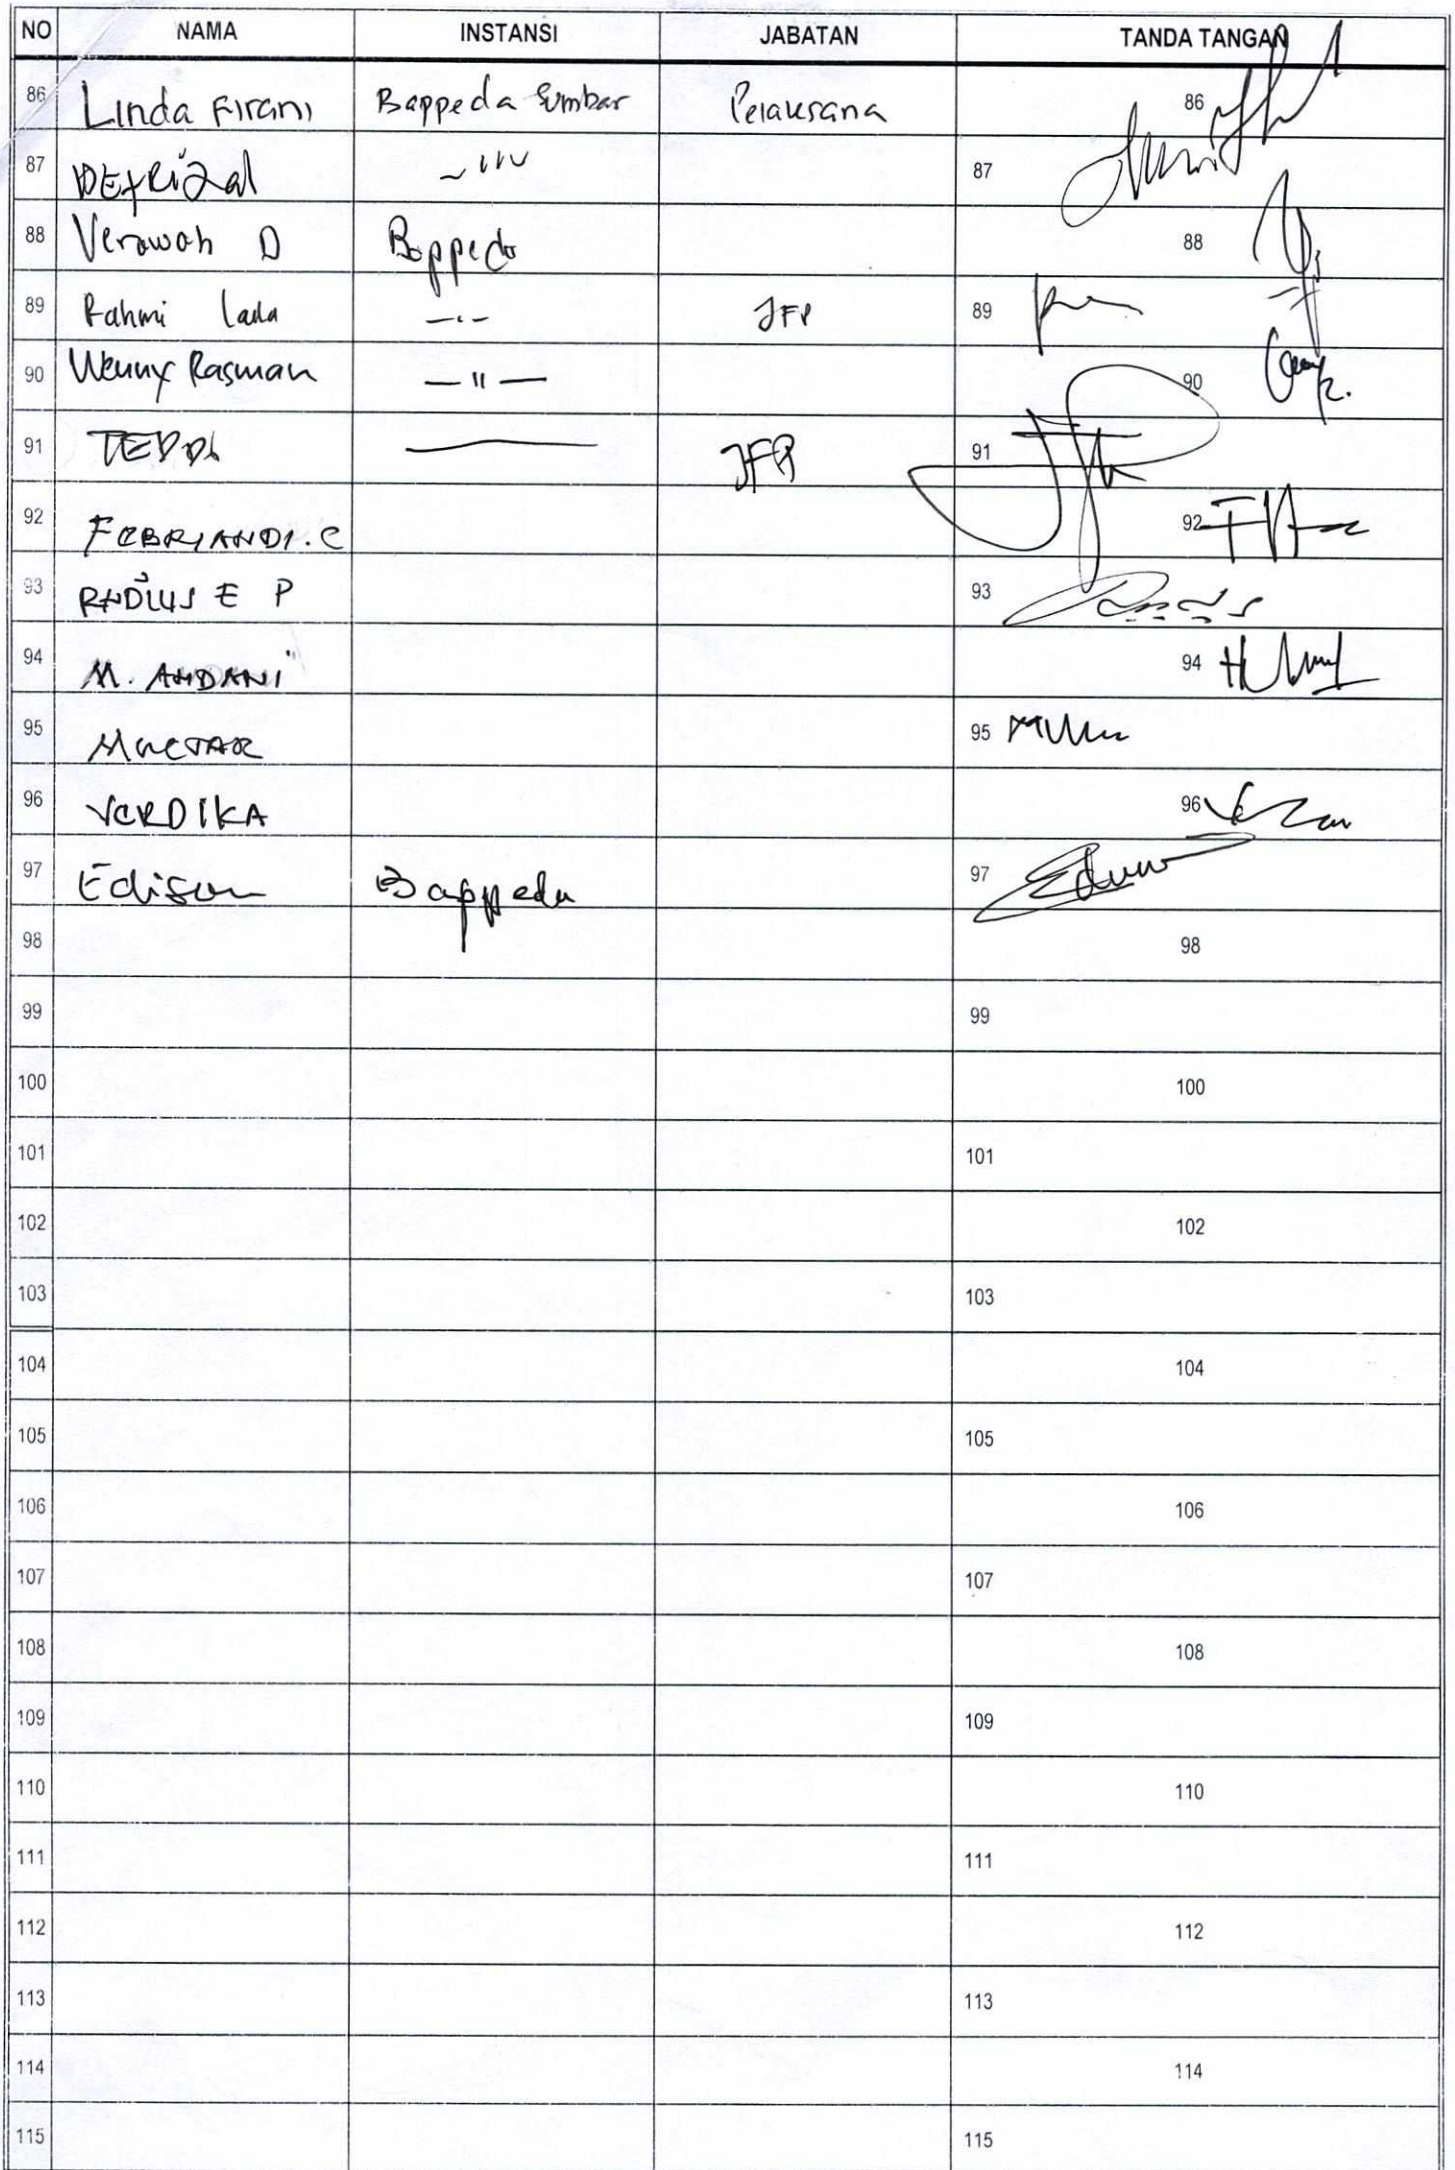 NO NAMA INSTANSI JABATAN TANDA TANGAN
86 Linda Firani Bappeda Sumbar Pelaksana 86
87 DEfRiZal 87
88 Verawati D Bappeda 88
89 Rahmi Laila JFP 89
90 Wenny Rasman — " — 90
91 TEDDI JFP 91
92 FEBRIANDI. C 92
93 RADIUS E P 93
94 M. ANDANI 94
95 MUCTAR 95
96 VERDIKA 96
97 Edison Bappeda 97
98 98
99 99
100 100
101 101
102 102
103 103
104 104
105 105
106 106
107 107
108 108
109 109
110 110
111 111
112 112
113 113
114 114
115 115